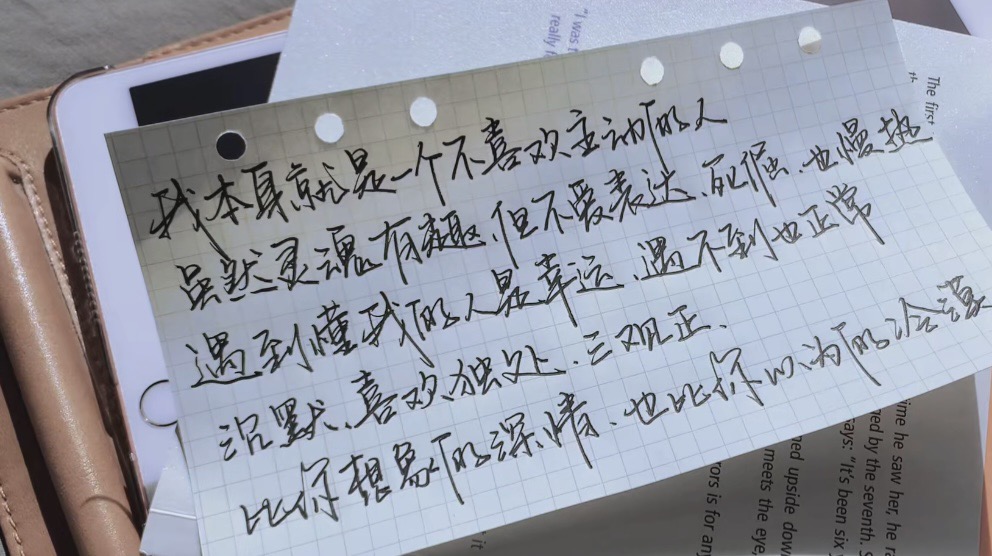 我本身就是一个不喜欢主动的人
虽然灵魂有趣、但不爱表达、死倔、也慢热
遇到懂我的人是幸运、遇不到也正常
沉默、喜欢独处、三观正、
比你想象的深情、也比你以为的冷漠
"I was
really
The first
th
ime he saw her, he
ned by the seventh.
says: "It's been six
ned upside dow
meets the eye,
rors is for any
it